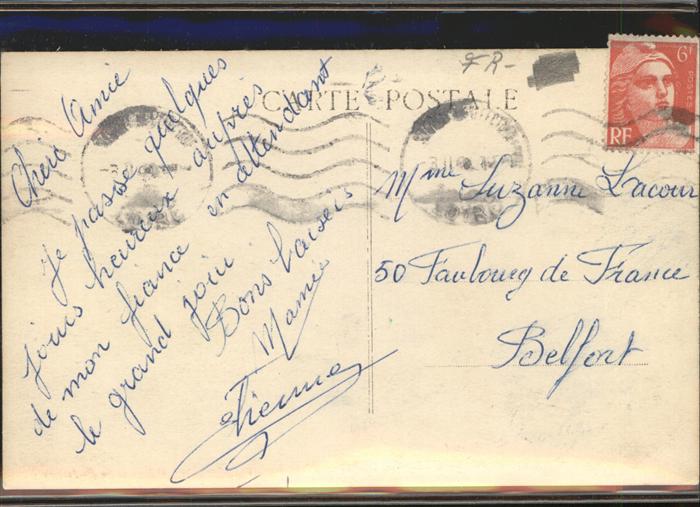 CARTE POSTALE
FR-
6F
RF
Chère Amie
Je passe quelques
jours heureux auprès
de mon fiancé en attendant
le grand jour.
Bons baisers
Mamie
Etienne
Mme Suzanne Lacour
50 Faubourg de France
Belfort